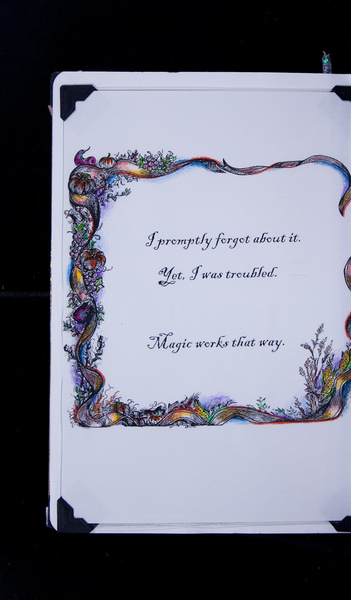 I promptly forgot about it.
Yet, I was troubled.
Magic works that way.